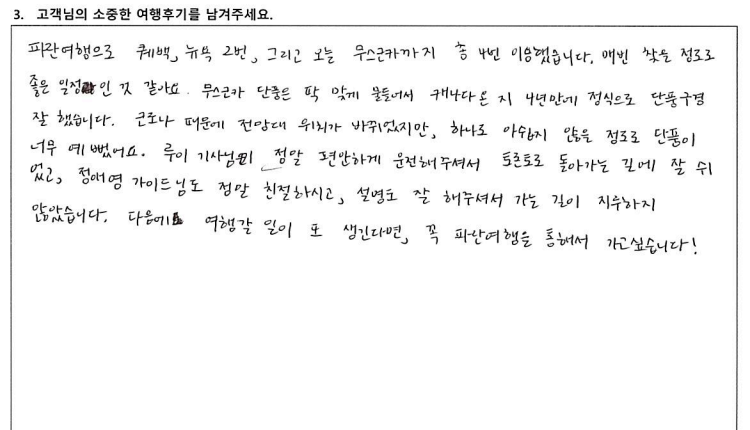 3. 고객님의 소중한 여행후기를 남겨주세요.
파란여행으로 퀘백, 뉴욕 2번, 그리고 오늘 무스코카까지 총 4번 이용했습니다. 매번 찾을 정도로
좋은 일정인 것 같아요. 무스코카 단풍은 딱 맞게 물들어서 캐나다 온 지 4년만에 정식으로 단풍구경
잘 했습니다. 코로나 때문에 전망대 위치가 바뀌었지만, 하나도 아쉽지 않을 정도로 단풍이
너무 예뻤어요. 루이 기사님이 정말 편안하게 운전해주셔서 토론토로 돌아가는 길에 잘 쉬
었고, 정애영 가이드님도 정말 친절하시고, 설명도 잘 해주셔서 가는 길이 지루하지
않았습니다. 다음에도 여행갈 일이 또 생긴다면, 꼭 파란여행을 통해서 가고싶습니다!